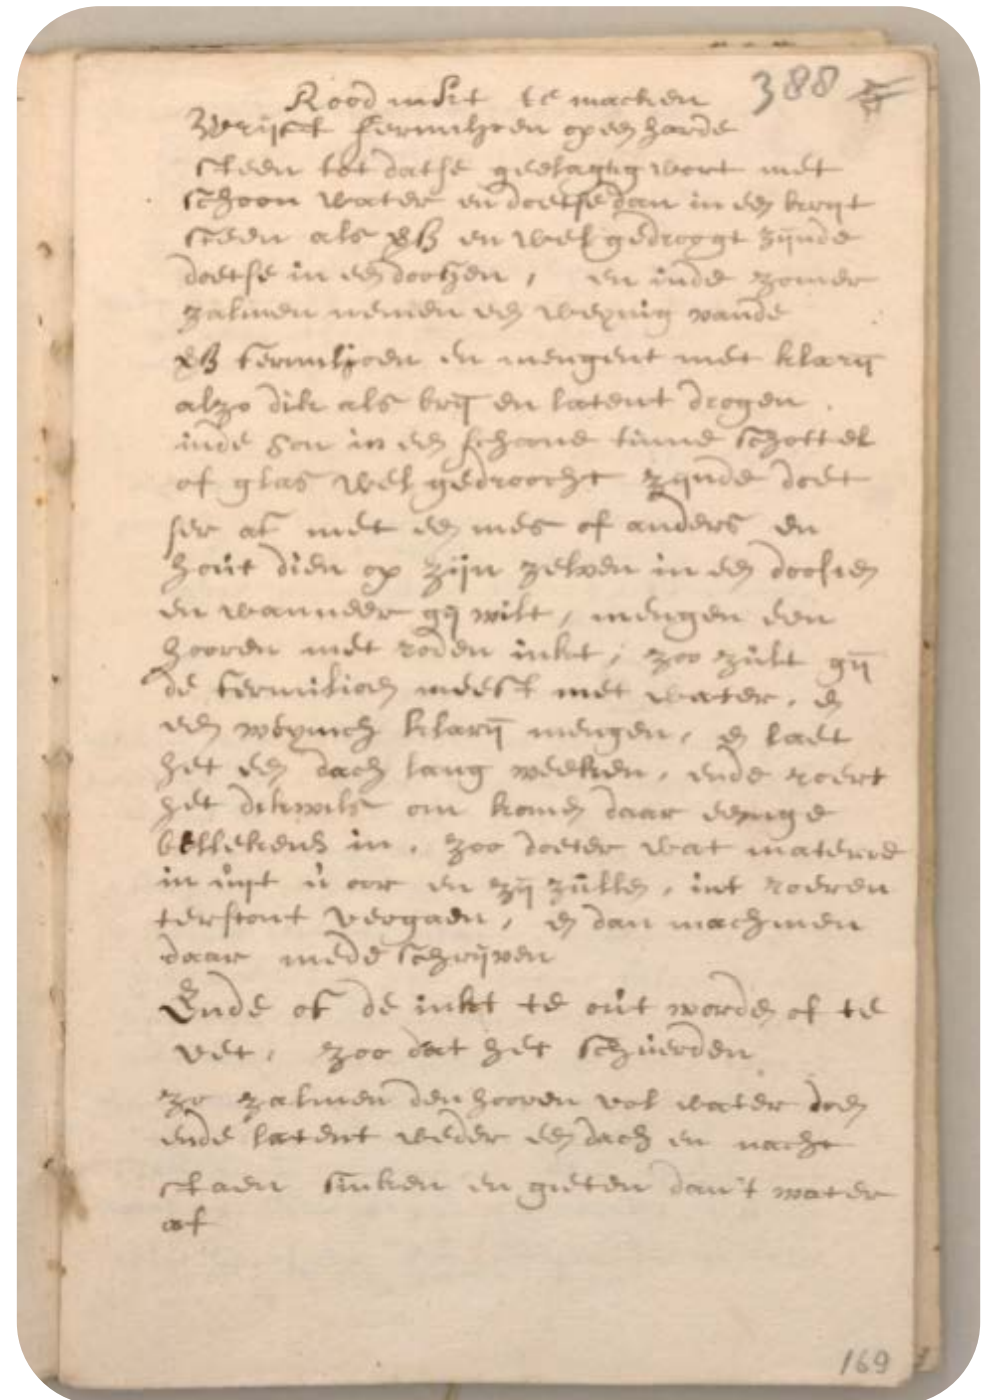 388
Rood indit te macken
Wrijft fermilyoen op een harde
steen tot datse geelagtig wort met
schoon water en doetse dan in een kryt
steen als en wel gedroogt zijnde
doetse in een doosjen, en inde zomer
zalmen nemen een weynig vande
fermiljoen en mengent met klarij
alzo dik als brij en latent drogen
inde son in een schoone tinne schottel
of glas wel gedroocht zijnde doet
ser af met een mes of anders en
hout dien op zijn zelven in een doosjen
en wanneer gij wilt, mengen een
hooren met roden inkt, zoo zult gij
de fermilioen meest met water, en
een weynich klarij mengen, en laet
het een dach lang weeken, ende roert
het dikwils om komen daar eenige
bellekens in, zoo doeter wat materie
in uyt u oor en zij zullen, int roeren
terstont vergaen, en dan machmen
daar mede schrijven
Ende of de inkt te out worden of te
vet, zoo dat het schuerden
zo zalmen den hooren vol water doen
ende latent weder een dach en nacht
staen sinken en gieten dan't water
af
169